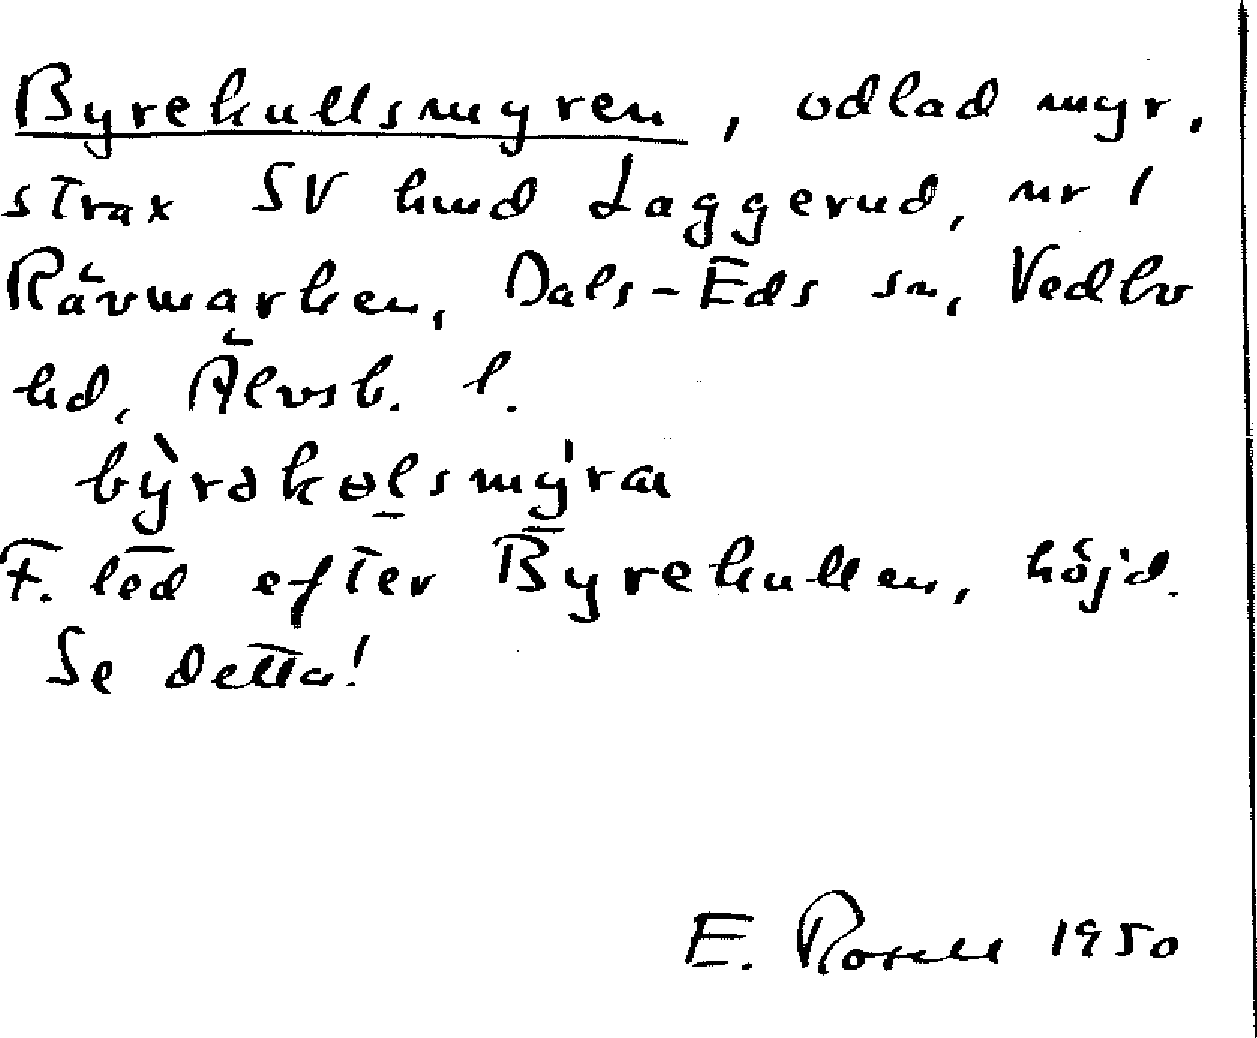 Byrekullsmyren, odlad myr,
strax SV hmd Laggerud, nr 1
Rävmarken, Dals-Eds sn, Vedbo
hd, Älvsb. l.
bỳrəkəlsmýra
F. led efter Byrekullen, höjd.
Se detta!
E. Rosell 1950